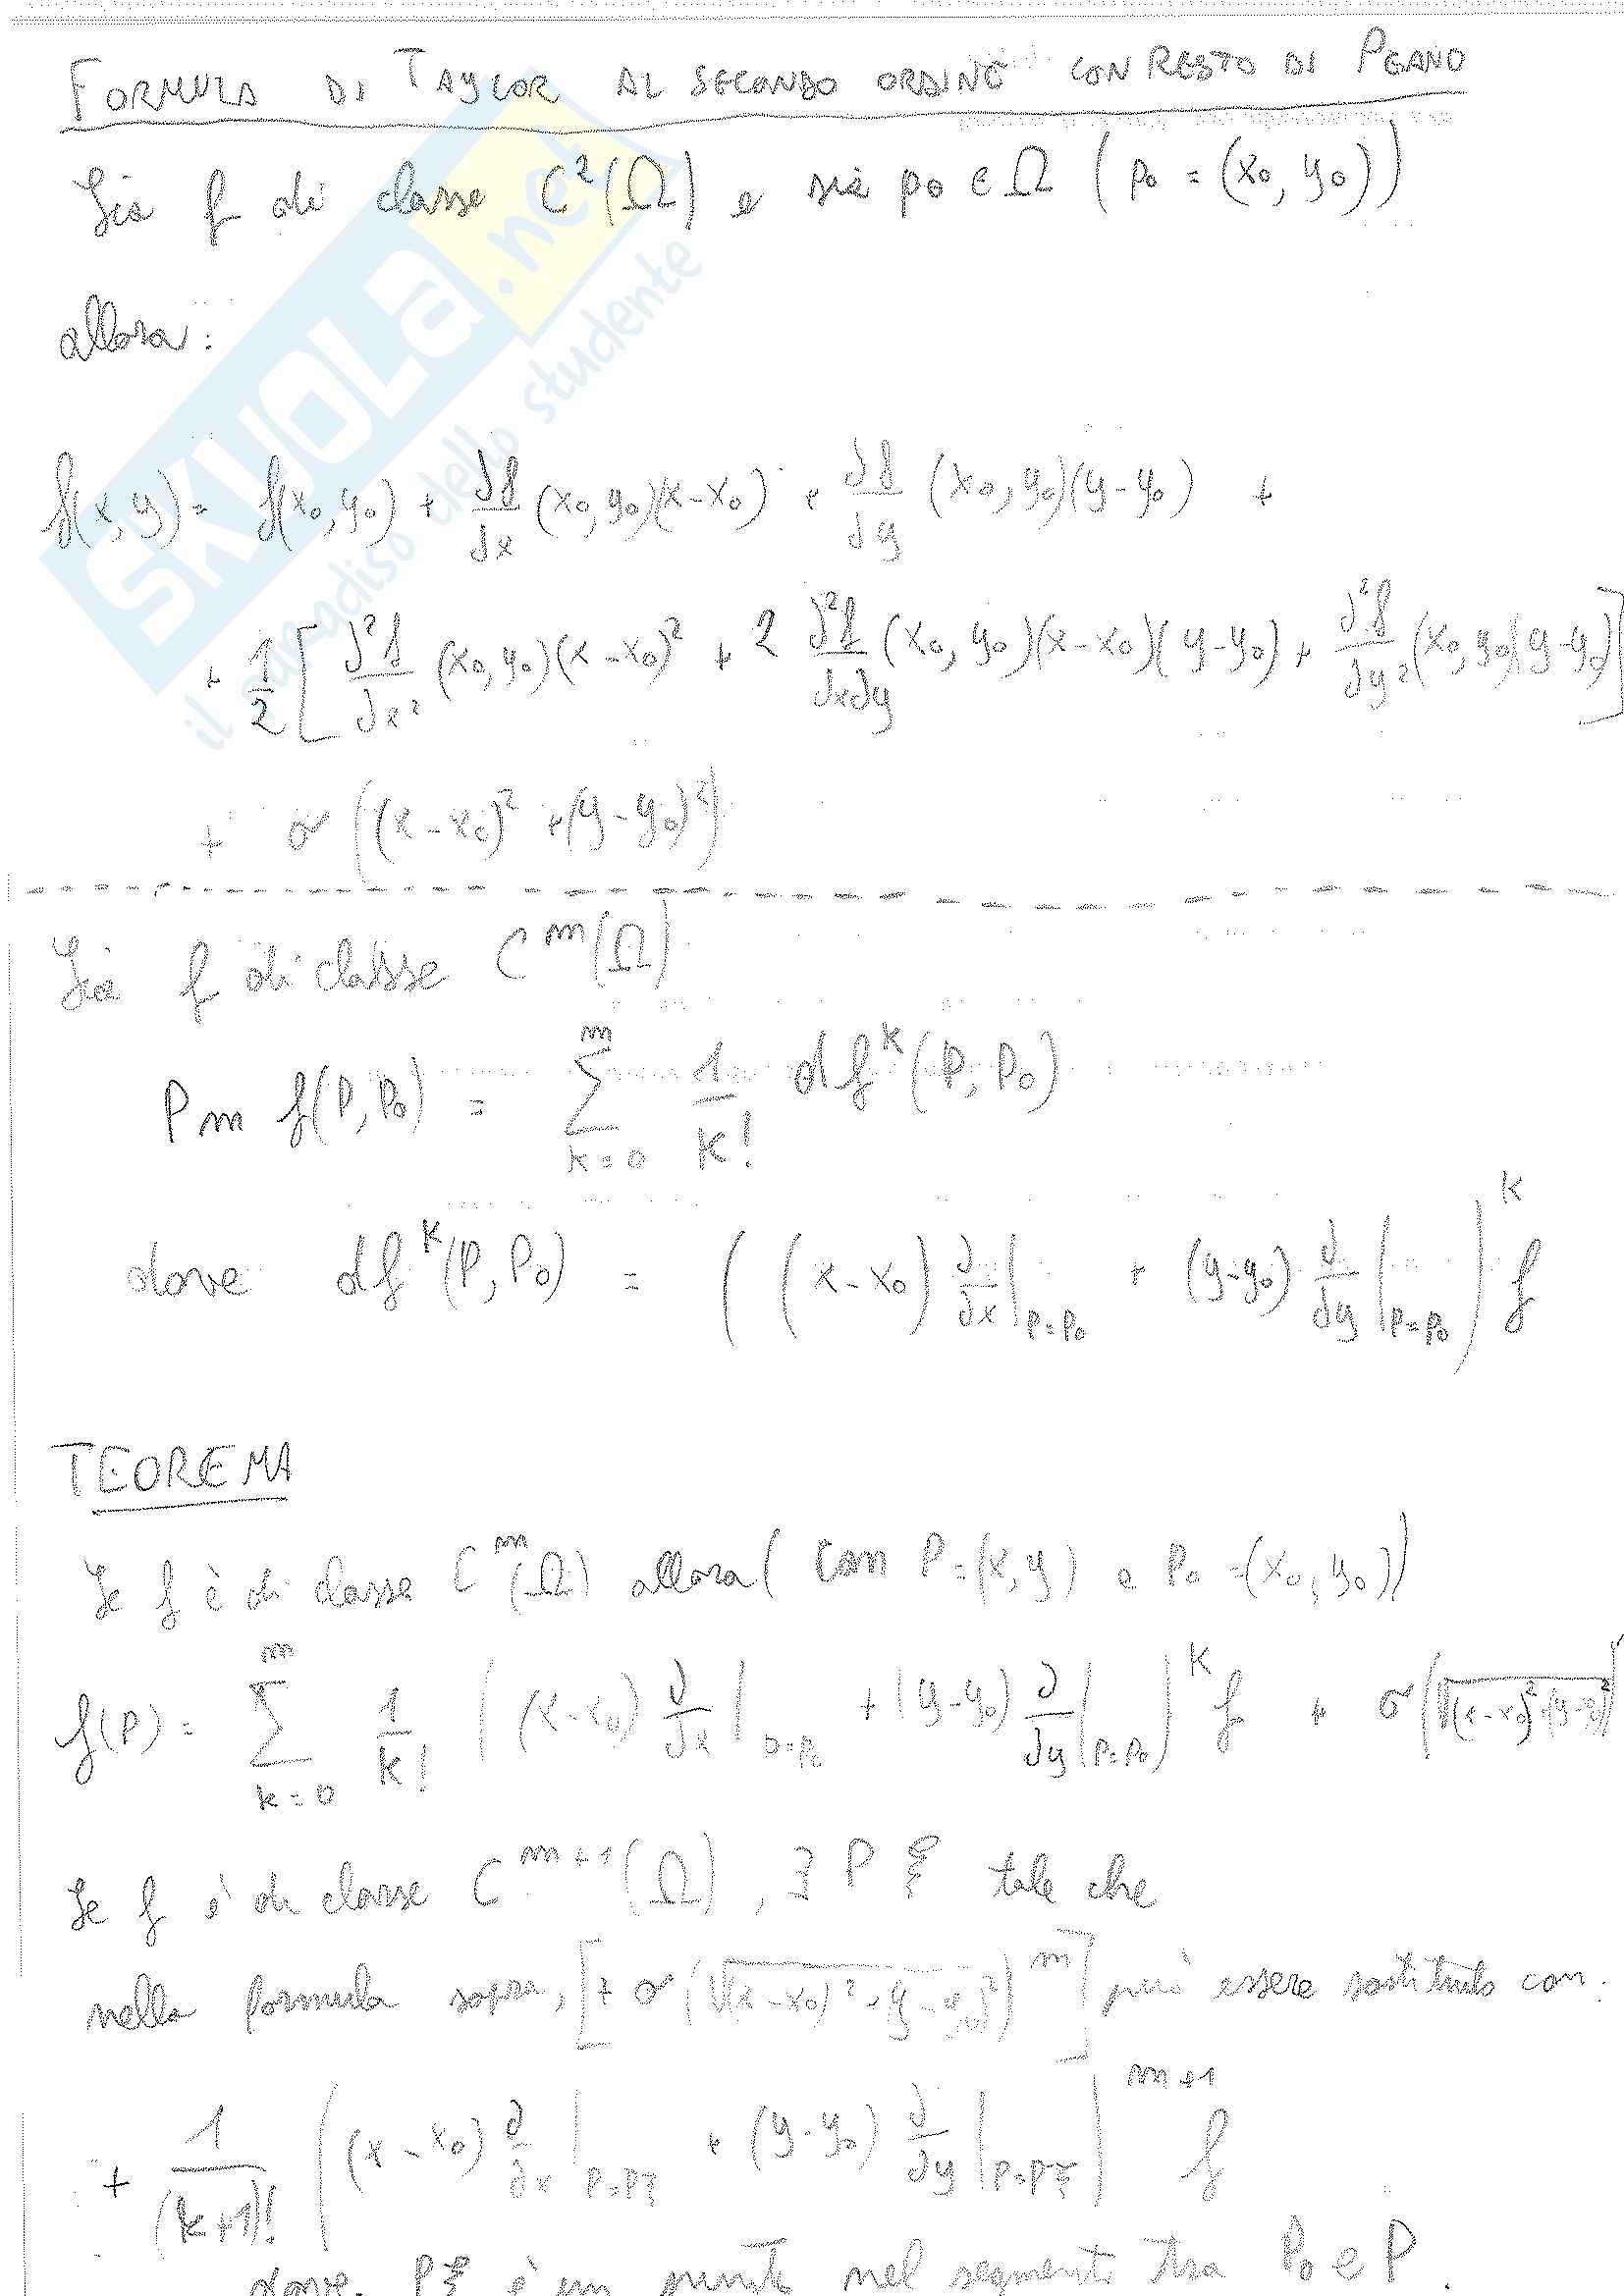 FORMULA DI TAYLOR AL SECONDO ORDINE CON RESTO DI PEANO
Sia f di classe C²(Ω) e sia p₀ ∈ Ω (p₀ = (x₀, y₀))
allora:
f(x,y) = f(x₀,y₀) + ∂f/∂x (x₀,y₀)(x-x₀) + ∂f/∂y (x₀,y₀)(y-y₀) +
+ 1/2 [ ∂²f/∂x² (x₀,y₀)(x-x₀)² + 2 ∂²f/∂x∂y (x₀,y₀)(x-x₀)(y-y₀) + ∂²f/∂y² (x₀,y₀)(y-y₀) ]
+ o((x-x₀)² + (y-y₀)²)
Sia f di classe Cᵐ(Ω)
Pm f(P,P₀) = ∑_{k=0}^{m} 1/k! df^k (P,P₀)
dove df^k (P,P₀) = ( (x-x₀) ∂/∂x |_{P=P₀} + (y-y₀) ∂/∂y |_{P=P₀} )^k f
TEOREMA
Se f è di classe Cᵐ(Ω) allora (con P=(x,y) e P₀=(x₀,y₀))
f(P) = ∑_{k=0}^{m} 1/k! ( (x-x₀) ∂/∂x |_{P=P₀} + (y-y₀) ∂/∂y |_{P=P₀} )^k f + o(√((x-x₀)²+(y-y₀)²)
Se f è di classe C^{m+1}(Ω), ∃ Pξ tale che
nella formula sopra, [+ o(√((x-x₀)²+(y-y₀)²)^m] può essere sostituito con:
+ 1/(k+1)! ( (x-x₀) ∂/∂x |_{P=Pξ} + (y-y₀) ∂/∂y |_{P=Pξ} )^{m+1} f
dove Pξ è un punto nel segmento tra P₀ e P.
SKUOLA.net
il paradiso dello studente